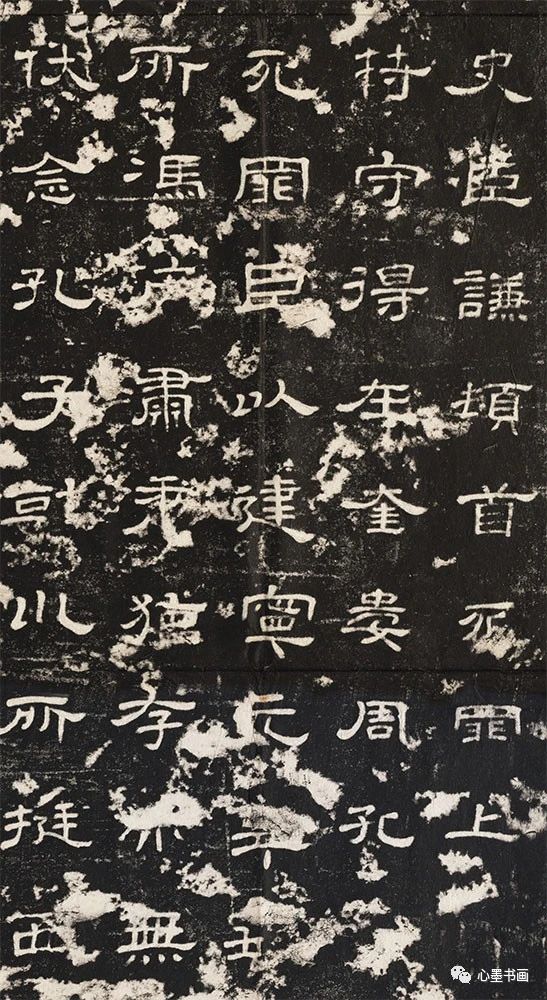 史臣謙頓首死罪上
符守得在奎婁周孔
死罪臣以建寧元年
所馮依肅肅猶存而無
伏念孔子乾川所挺西
心墨书画